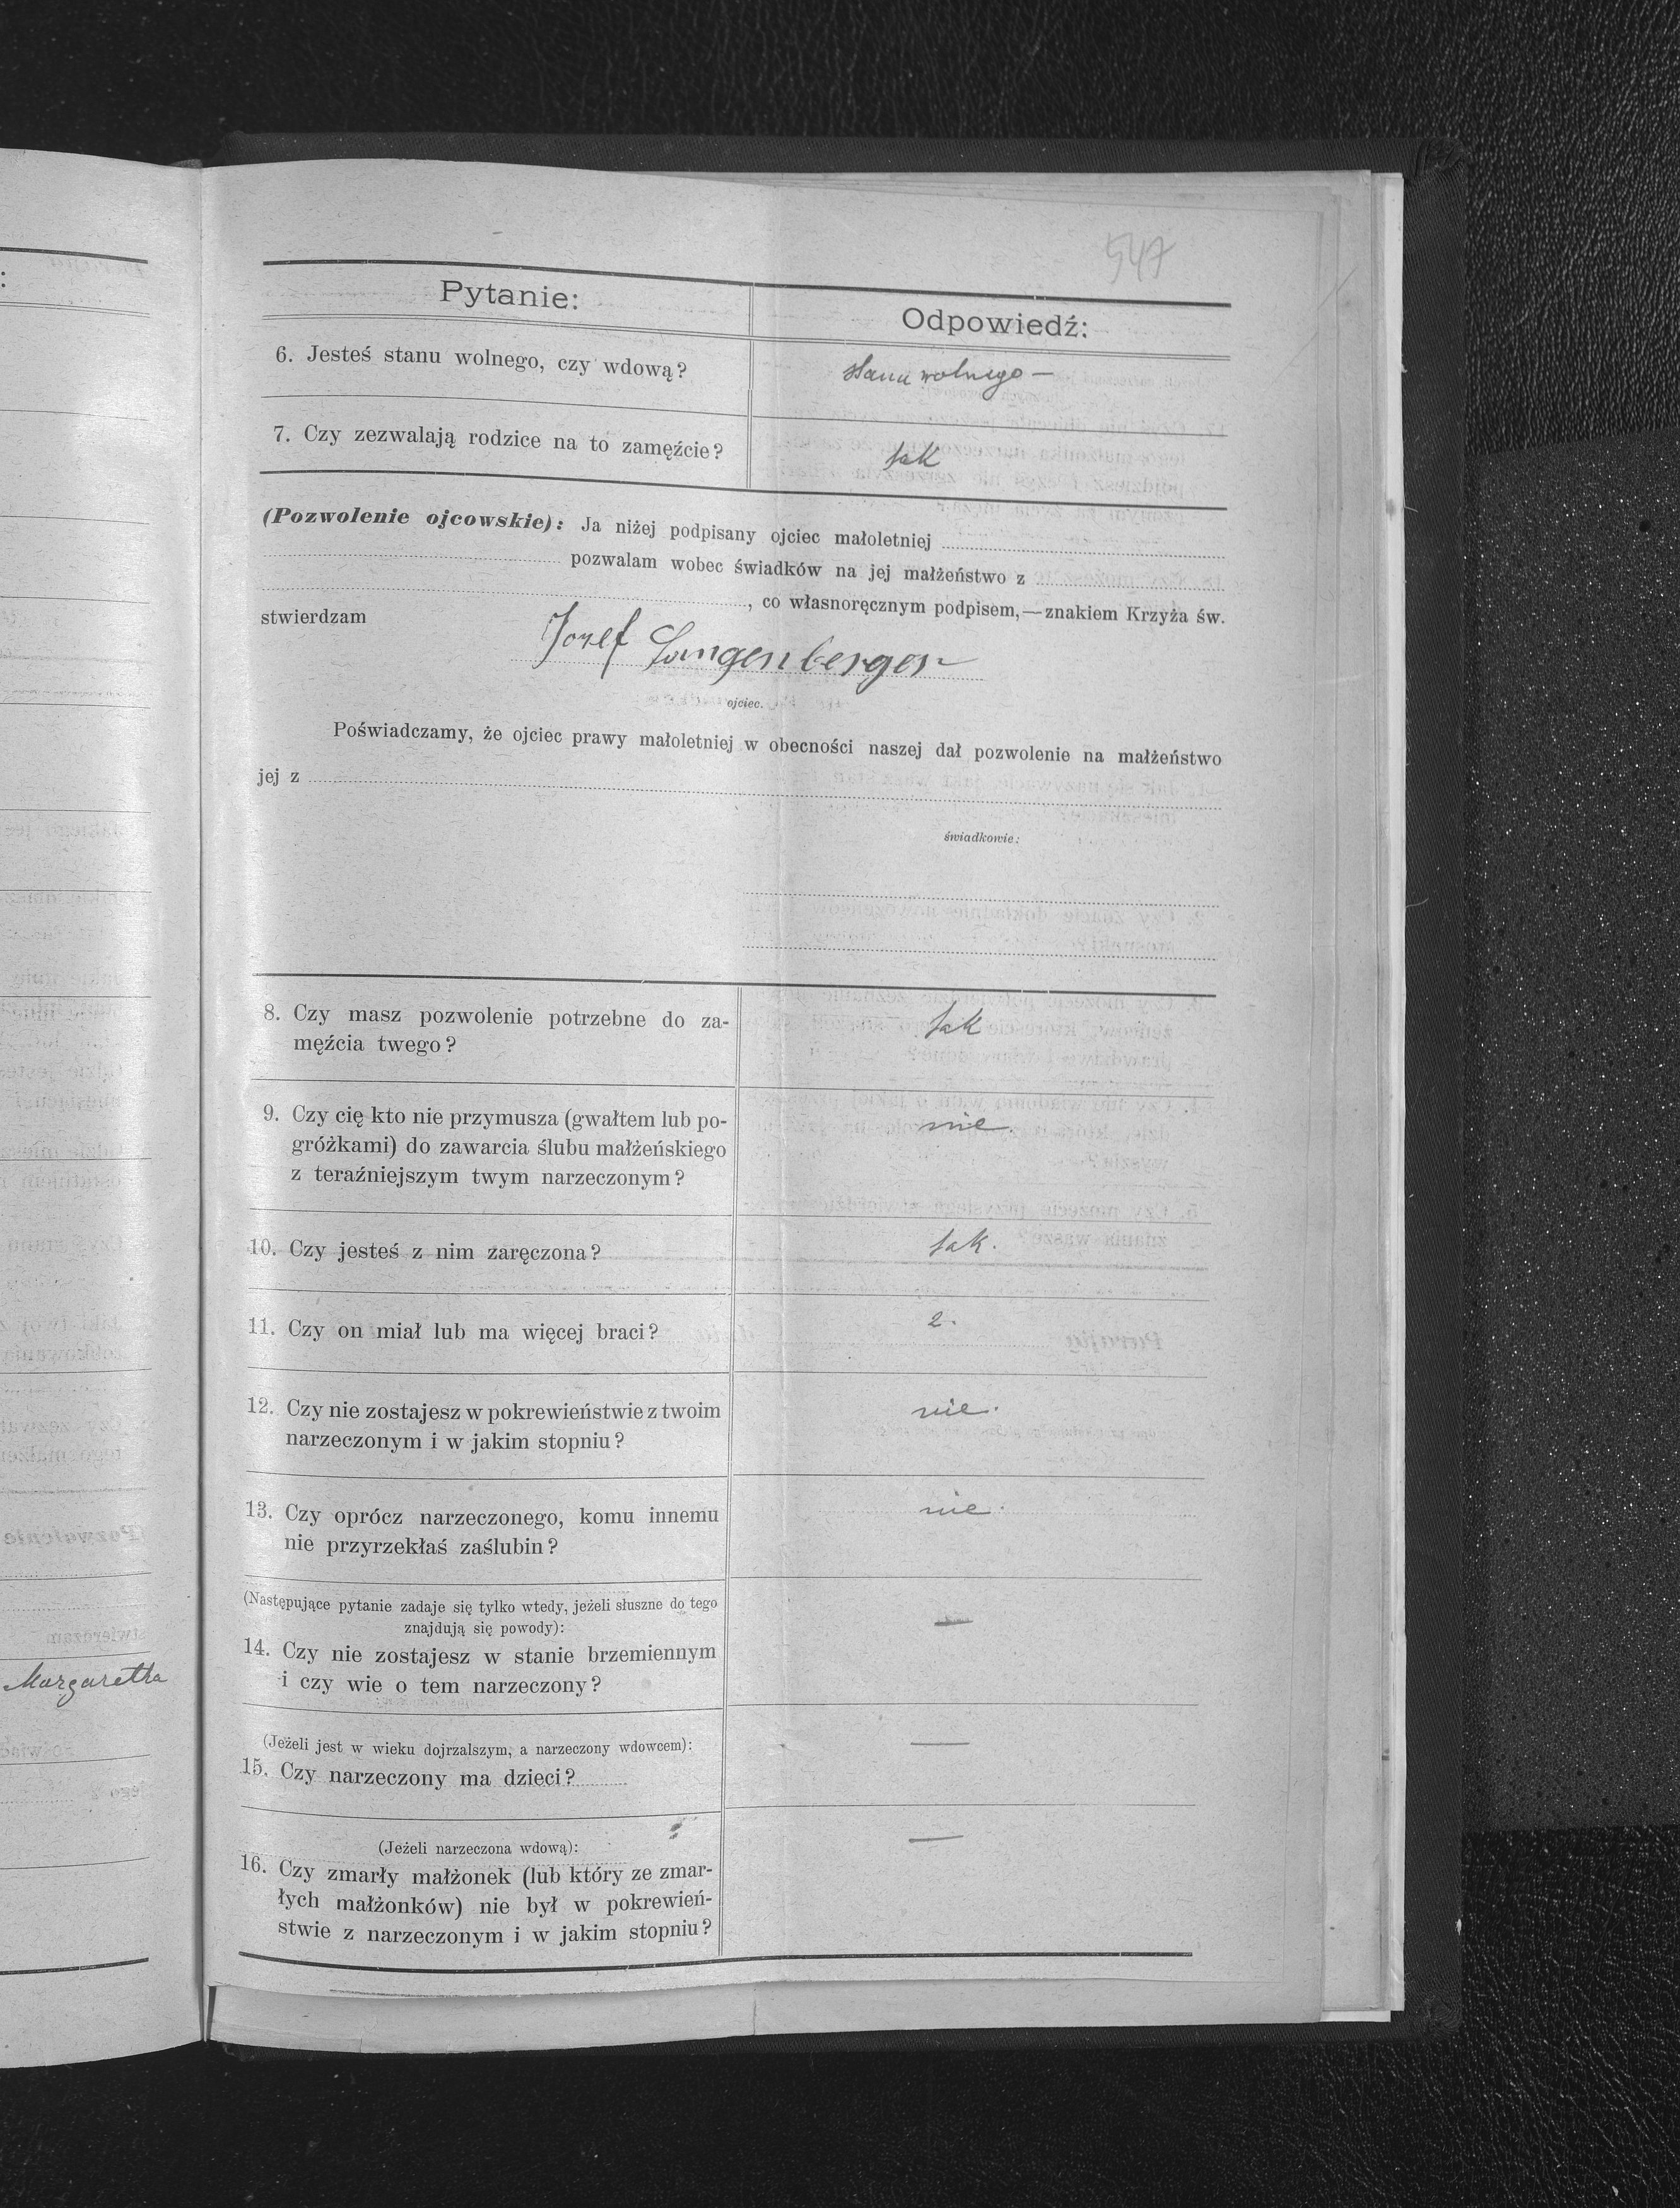 547
Pytanie:
Odpowiedź:
6. Jesteś stanu wolnego, czy wdową?
stanu wolnego —
7. Czy zezwalają rodzice na to zamęźcie?
tak
(Pozwolenie ojcowskie): Ja niżej podpisany ojciec małoletniej
pozwalam wobec świadków na jej małżeństwo z
, co własnoręcznym podpisem,—znakiem Krzyża św.
stwierdzam
Jozef Langenberger
ojciec.
Poświadczamy, że ojciec prawy małoletniej w obecności naszej dał pozwolenie na małżeństwo
jej z
świadkowie:
8. Czy masz pozwolenie potrzebne do za-
męźcia twego?
tak
9. Czy cię kto nie przymusza (gwałtem lub po-
gróżkami) do zawarcia ślubu małżeńskiego
z teraźniejszym twym narzeczonym?
nie.
10. Czy jesteś z nim zaręczona?
tak.
11. Czy on miał lub ma więcej braci?
2.
12. Czy nie zostajesz w pokrewieństwie z twoim
narzeczonym i w jakim stopniu?
nie.
13. Czy oprócz narzeczonego, komu innemu
nie przyrzekłaś zaślubin?
nie.
(Następujące pytanie zadaje się tylko wtedy, jeżeli słuszne do tego
znajdują się powody):
14. Czy nie zostajesz w stanie brzemiennym
i czy wie o tem narzeczony?
—
(Jeżeli jest w wieku dojrzalszym, a narzeczony wdowcem):
15. Czy narzeczony ma dzieci?
—
(Jeżeli narzeczona wdową):
16. Czy zmarły małżonek (lub który ze zmar-
łych małżonków) nie był w pokrewień-
stwie z narzeczonym i w jakim stopniu?
—
Margaretha